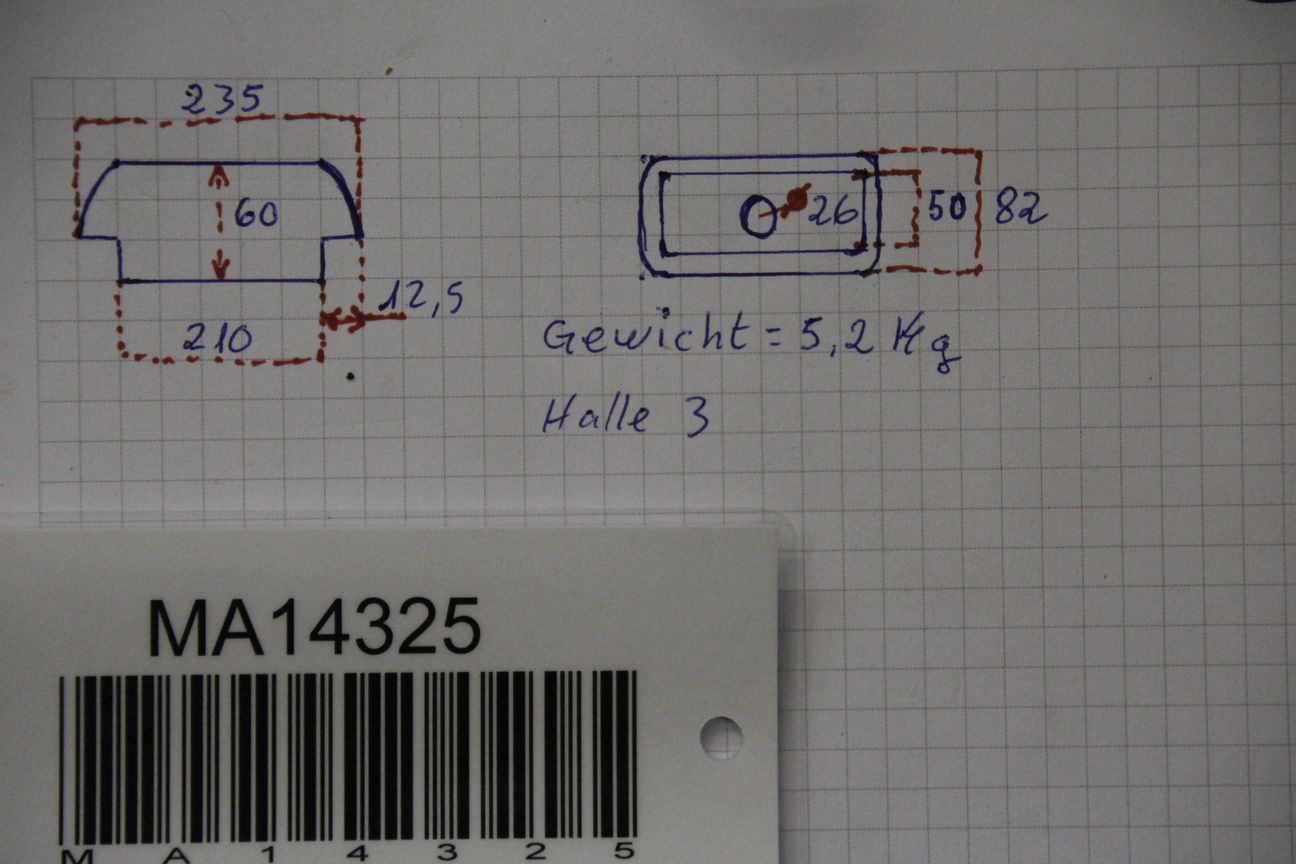 235
60
12,5
210
26
50
82
Gewicht = 5,2 Kg
Halle 3
MA14325
M A 1 4 3 2 5